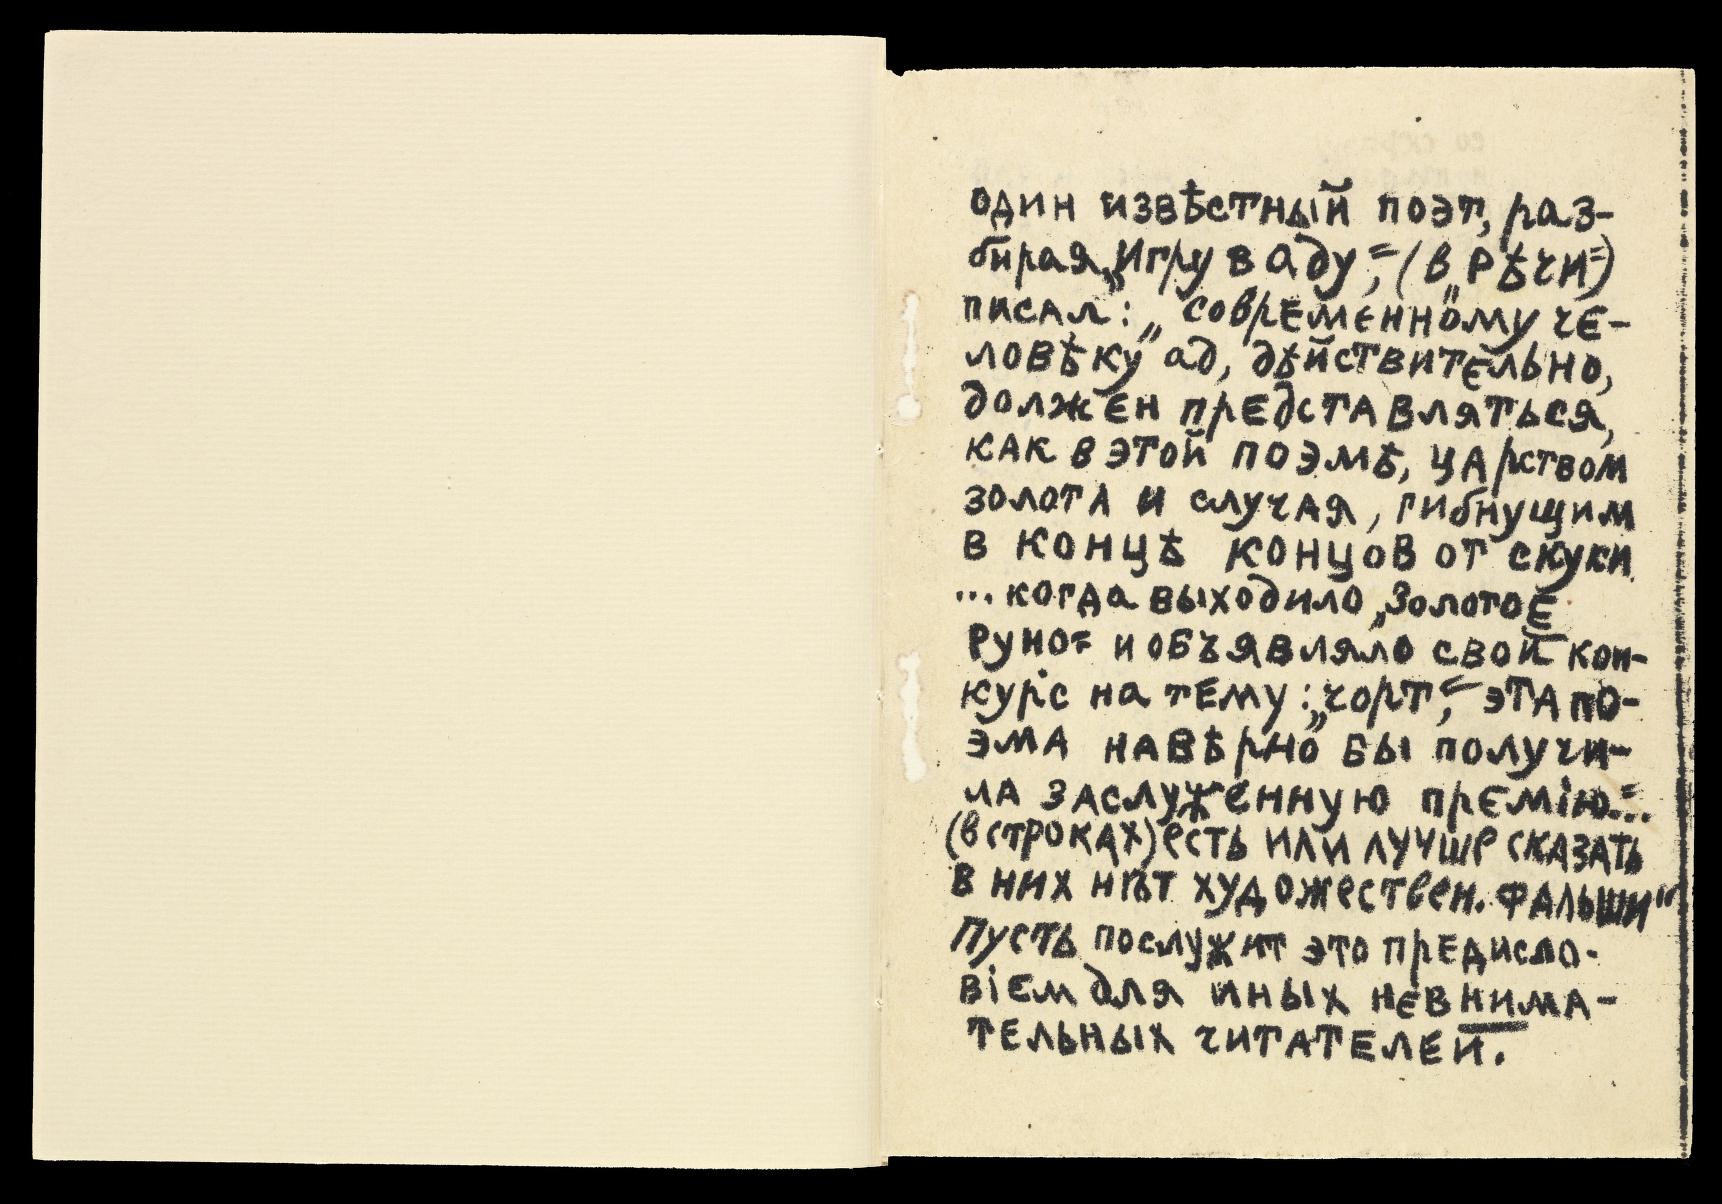 один извѣстный поэт, раз-
бирая „Игру в аду“, (в „Рѣчи“)
писал: „современному че-
ловѣку ад, дѣйствительно,
должен представляться,
как в этой поэмѣ, царством
золота и случая, гибнущим
в концѣ концов от скуки
... когда выходило „Золотое
Руно“ и объявляло свой кон-
курс на тему: „чорт“, эта по-
эма навѣрно бы получи-
ла заслуженную премію...“
(в строках) есть или лучше сказать
в них нѣт художествен. фальши“
Пусть послужит это предисло-
віем для иных невнима-
тельных читателей.